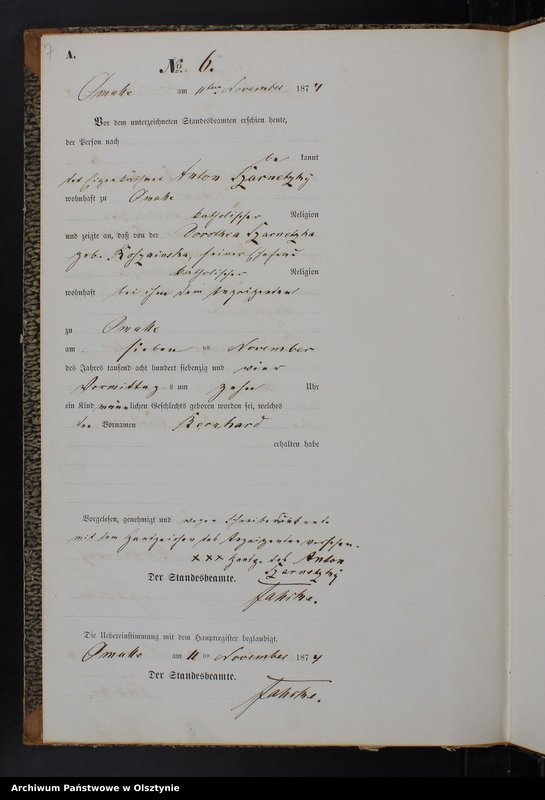 7
A.
No. 6.
Omulle am 11ten November 1874
Vor dem unterzeichneten Standesbeamten erschien heute,
der Person nach
be kannt
der Eigenkäthner Anton Czarnetzky
wohnhaft zu Omulle
katholischer Religion
und zeigte an, daß von der Dorothea Czarnetzka
geb. seiner Ehefrau
katholischer Religion
wohnhaft bei ihm dem Anzeigenden
zu Omulle
am sieben ten November
des Jahres tausend acht hundert siebenzig und vier
Vormittag s um zehn Uhr
ein Kind männlichen Geschlechts geboren worden sei, welches
den Vornamen Bernhard
erhalten habe
Vorgelesen, genehmigt und wegen Schreibensunkunde
mit dem Handzeichen des Anzeigenden versehen.
××× Handz. des Anton
Czarnetzky
Der Standesbeamte.
Jahrke.
Die Uebereinstimmung mit dem Hauptregister beglaubigt.
Omulle am 11 ten November 1874
Der Standesbeamte.
Jahrke.
Archiwum Państwowe w Olsztynie